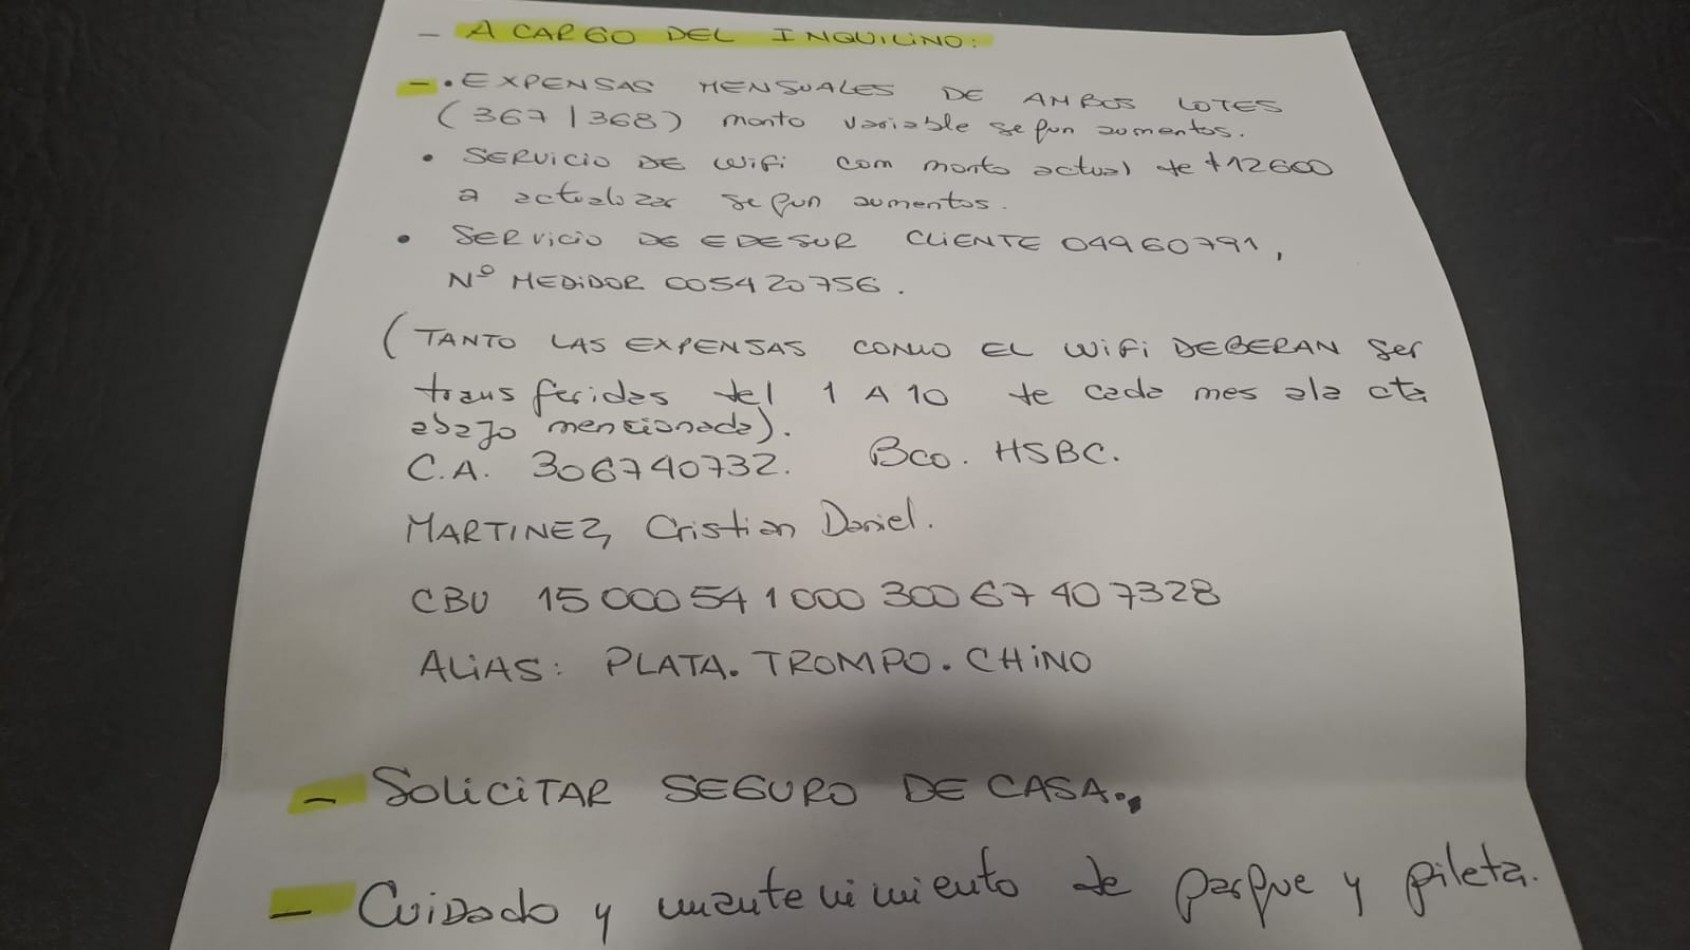 - A CARGO DEL INQUILINO:
- . EXPENSAS MENSUALES DE AMBOS LOTES
(367 | 368) monto variable segun aumentos.
• SERVICIO DE WiFi com monto actual de $12600
a actualizar segun aumentos.
• SERVICIO DE EDESUR CLIENTE 04960791,
Nº MEDIDOR 005420756.
(TANTO LAS EXPENSAS COMO EL WiFi DEBERAN ser
transferidas del 1 A 10 de cada mes a la cta
abajo mencionada).
C.A. 306740732. Bco. HSBC.
MARTINEZ, Cristian Daniel.
CBU 15 000 54 1 000 300 67 40 7328
ALIAS: PLATA.TROMPO.CHINO
- SOLICITAR SEGURO DE CASA.,
- Cuidado y mantenimiento de parque y pileta.